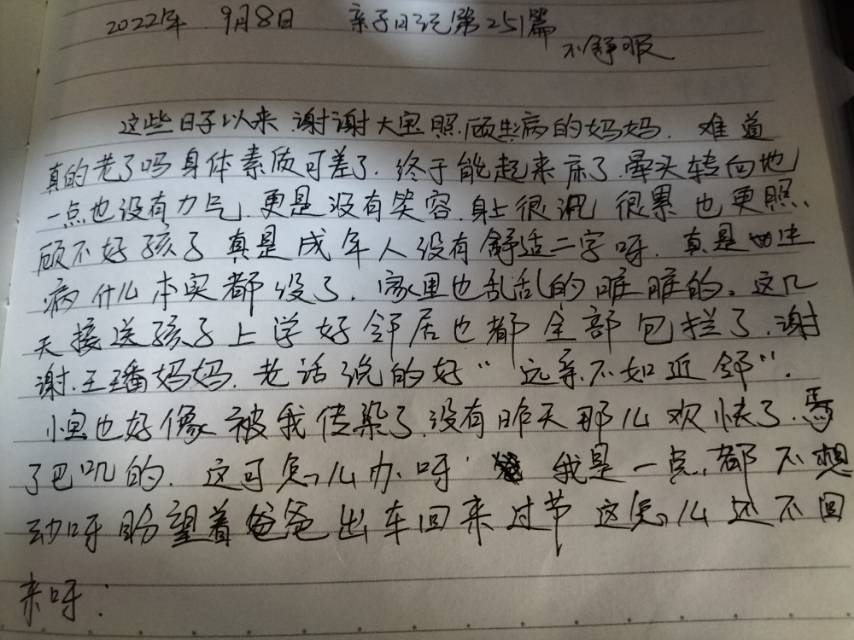 2022年 9月8日 亲子日记第251篇
不舒服
这些日子以来.谢谢大宝照.顾生病的妈妈. 难道
真的老了吗身体素质可差了.终于能起来床了.晕头转向地
一点也没有力气.更是没有笑容.身上很沉 很累也更照.
顾不好孩子真是成年人没有舒适二字呀.真是 生
病什么本实都没了.家里也乱乱的脏脏的。这几
天接送孩子上学好邻居也都全部包拦了.谢
谢.王璠妈妈.老话说的好“远亲不如近邻”.
小宝也好像被我传染了.没有昨天那么欢快了.焉
了巴叽的.这可怎么办.呀 我是一点.都不想
动呀盼望着爸爸出车回来过节这怎么还不回
来呀: